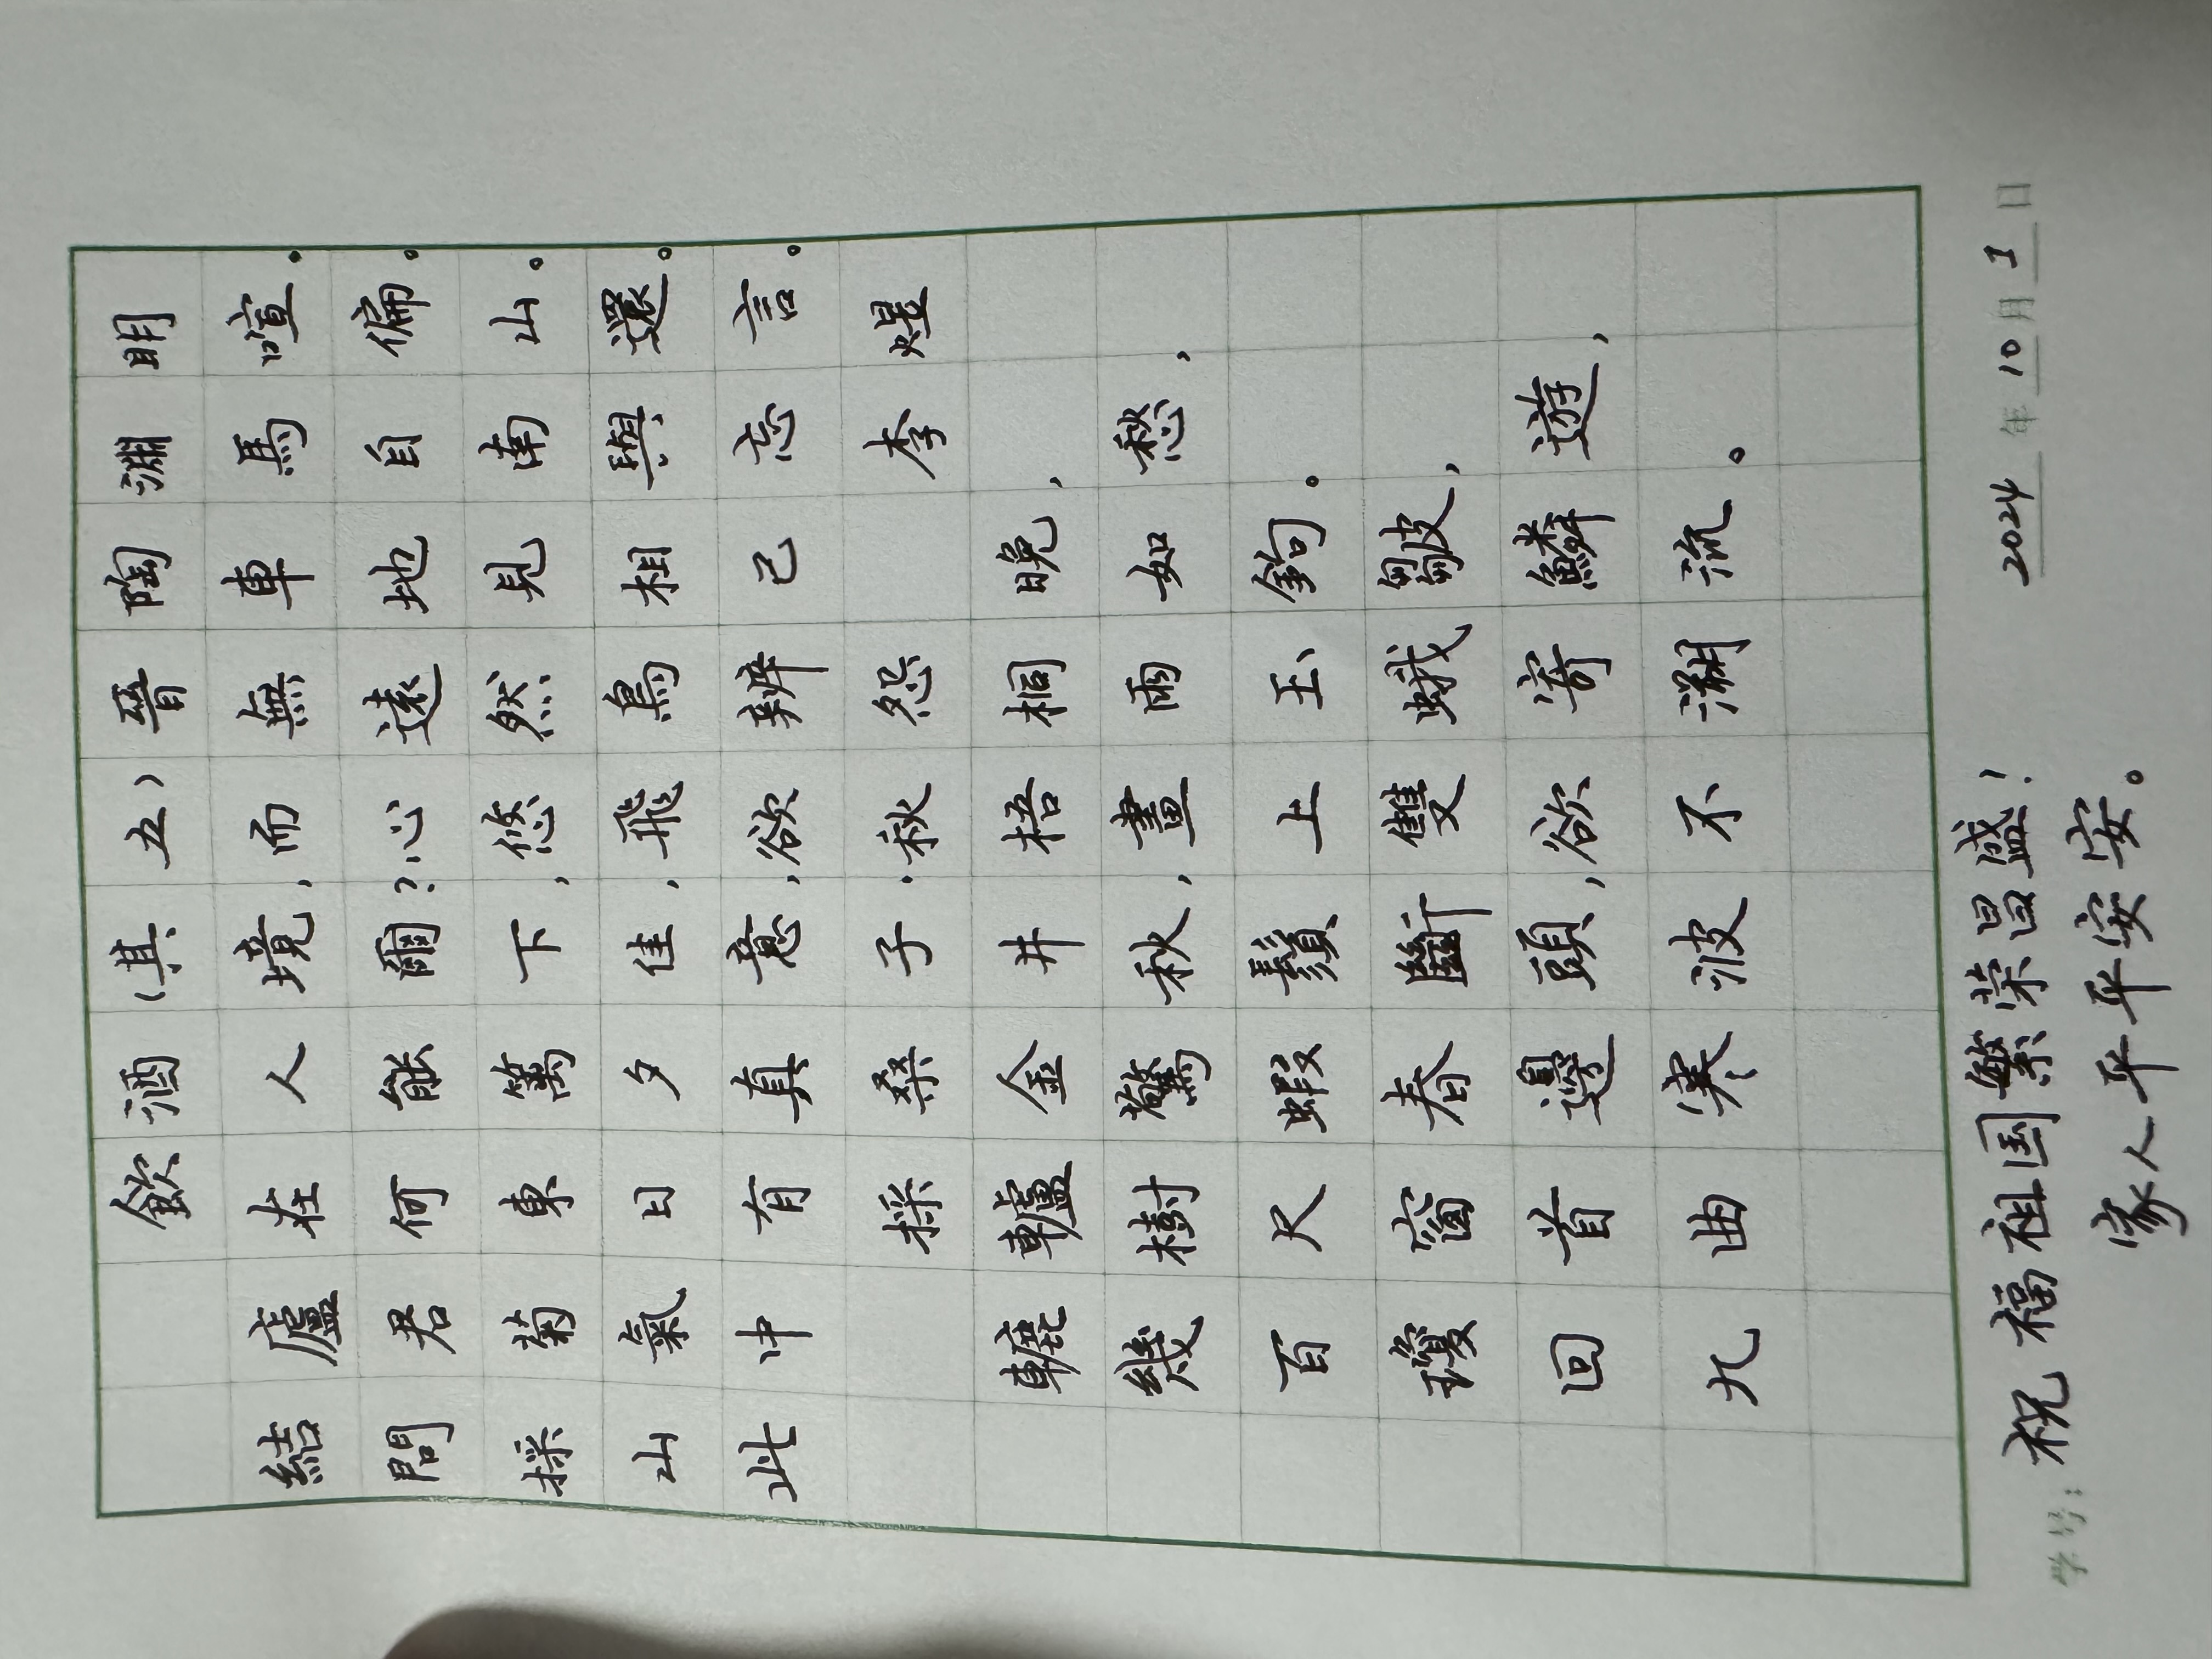 飲酒(其五)晉陶淵明
結廬在人境,而無車馬喧。
問君何能爾?心遠地自偏。
採菊東籬下,悠然見南山。
山氣日夕佳,飛鳥相與還。
此中有真意,欲辨己忘言。
採桑子·秋怨 李煜
轆轤金井梧桐晚,
幾樹驚秋,晝雨如愁,
百尺蝦鬚上玉鉤。
瓊窗春斷雙蛾皺,
回首邊頭,欲寄鱗遊,
九曲寒波不溯流。
学号:祝福祖国繁荣昌盛! 2024年10月1日
家人平平安安。